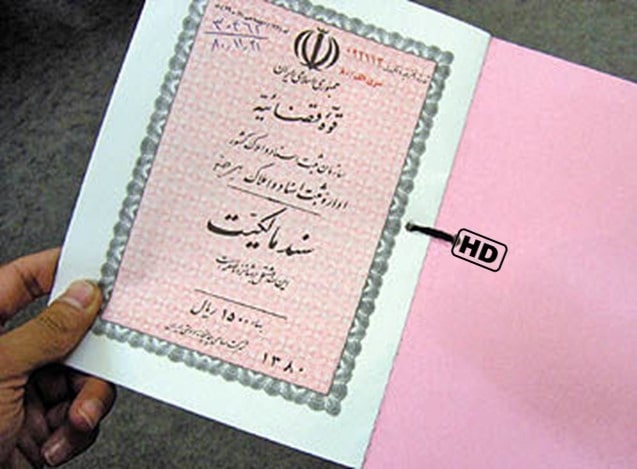 ۳۰۲۶۲
۸۰٫۱۱٫۲۱
۰۹۲۱۱۳
جمهوری اسلامی ایران
قوّه قضائیّه
سازمان ثبت اسناد و املاک کشور
اداره ثبت اسناد و املاک
سند مالکیّت
بهاء ۱۵۰۰ ریال
۱۳۸۰
HD